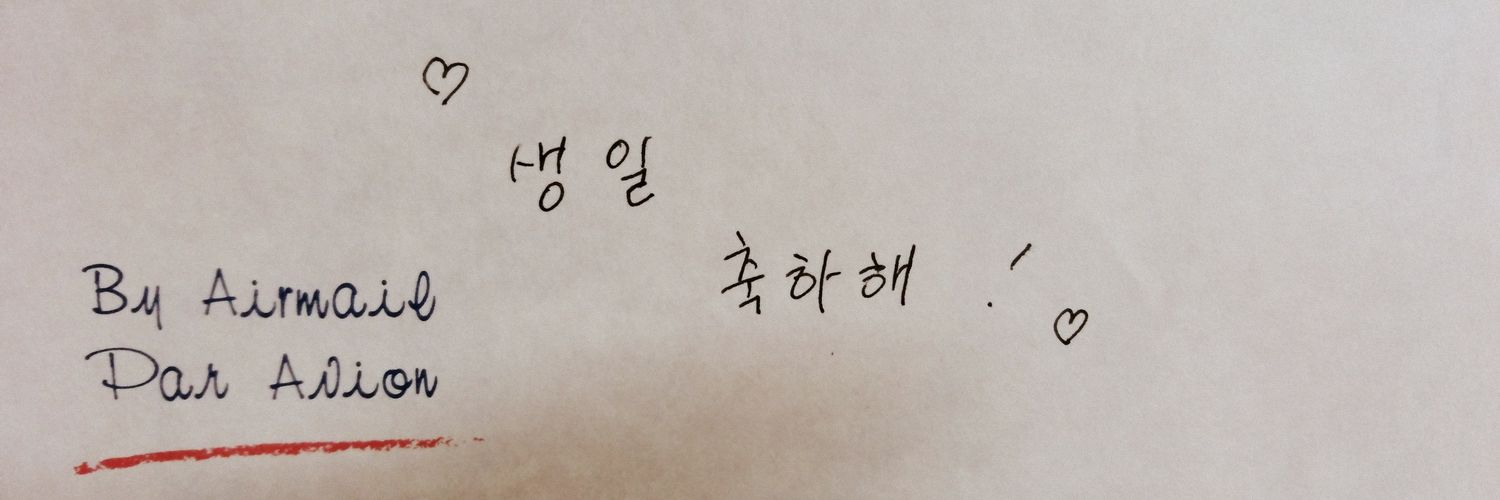 ♡
생일
축하해 !
♡
By Airmail
Par Avion